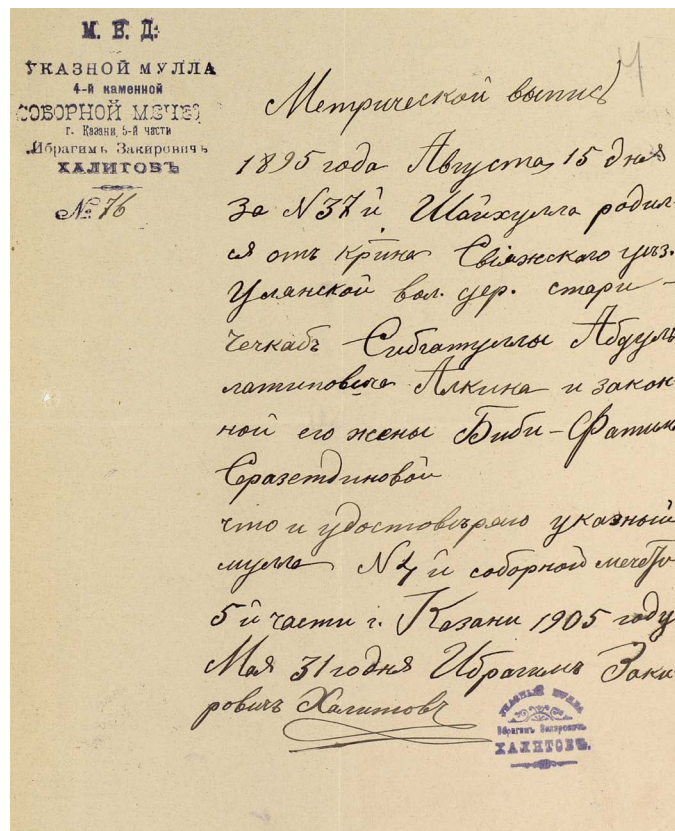 М. В. Д.
УКАЗНОЙ МУЛЛА
4-й каменной
СОБОРНОЙ МЕЧЕ
г. Казани, 5-й части
Ибрагимъ Закировичъ
ХАЛИТОВЪ
№ 76
4
Метрической выпись
1895 года Августа 15 дня
за N 37й Шайхулла родил-
ся отъ кр-ина Свіяжского уѣз.
Улянской вол. дер. стари-
Чечкабъ Сибгатуллы Абдулъ
латиповича Алкина и закон-
ной его жены Биби-Фатимы
Сразетдиновой
что и удостовѣряю указный
мулла N 4й соборной мечети
5й части г. Казани 1905 году
Мая 31го дня Ибрагимъ Заки
ровичъ Халитовъ
УКАЗНЫЙ МУЛЛА
Ибрагимъ Закировичъ
ХАЛИТОВЪ.